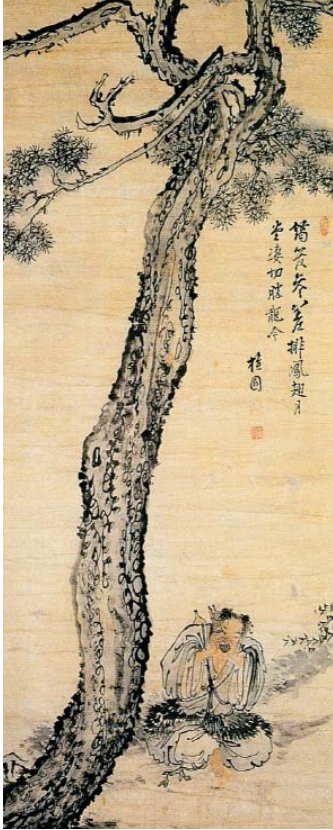 筠管參差排鳳翅月
堂凄切勝龍吟
檀園